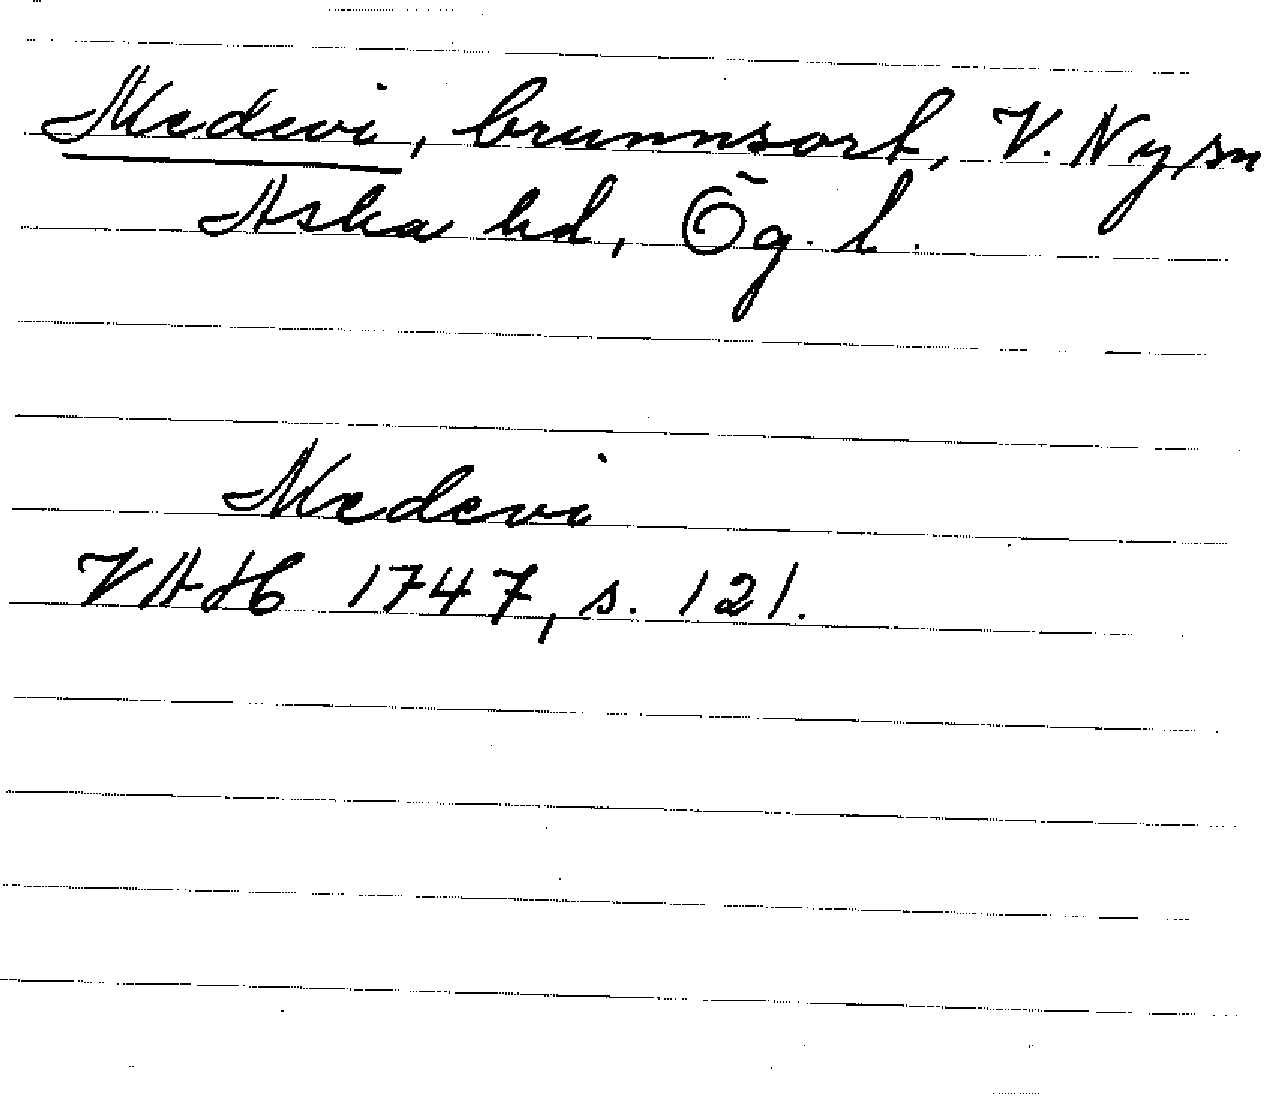 Medevi, brunnsort, V. Ny sn
Aska hd, Ög. l.
Medevi
VAH 1747, s. 121.